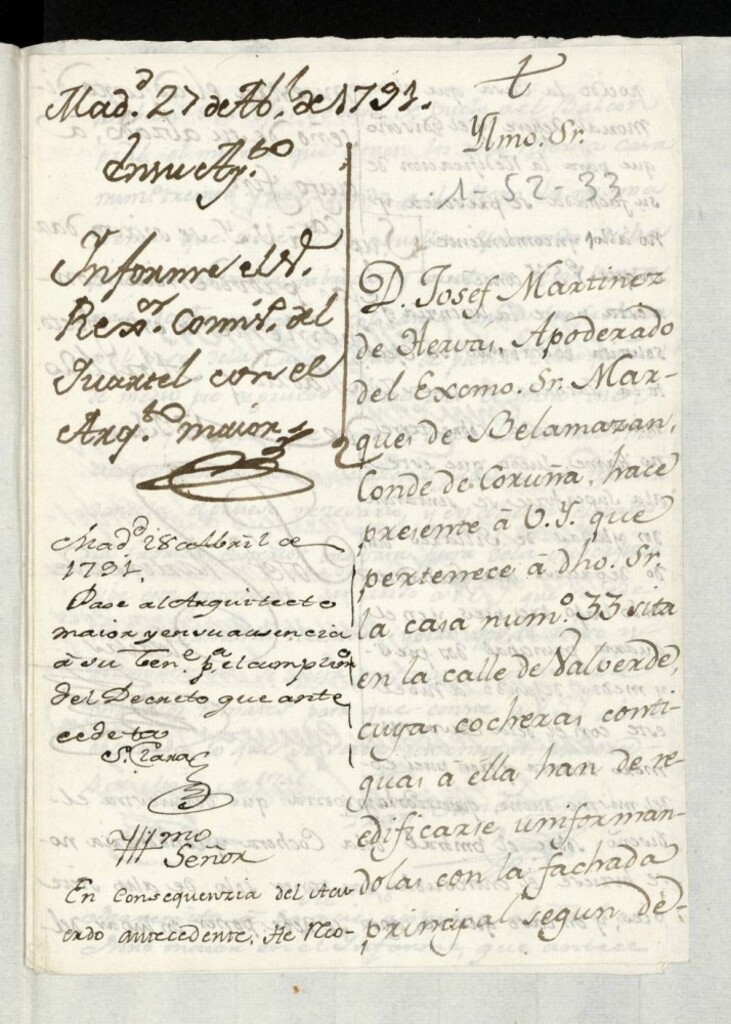 Mad.d 27 de Ab.l de 1791.
En su Ay.to
Informe el S.r
Rex.or Comis.o del
Quartel con el
Arq.to maior
Mad.d 28 de Abril de
1791.
Pase al Arquitecto
maior y en su ausencia
â su Ten.e p.a el cumplim.to
del Decreto que ante
cede
S.ta Clara
Yllmo
Señor
En Consequenzia del Acu-
erdo antecedente, He Reco-
Ylmo. Sr.
1-52-33
D. Josef Martinez
de Hervas, Apoderado
del Excmo. Sr. Mar-
ques de Belamazan,
Conde de Coruña, hace
presente â V.Y. que
pertenece â dho. Sr.
la casa num.o 33 sita
en la calle de Valverde,
cuyas cocheras conti-
guas a ella han de re-
edificarse uniforman-
dolas con la fachada
principal segun de-